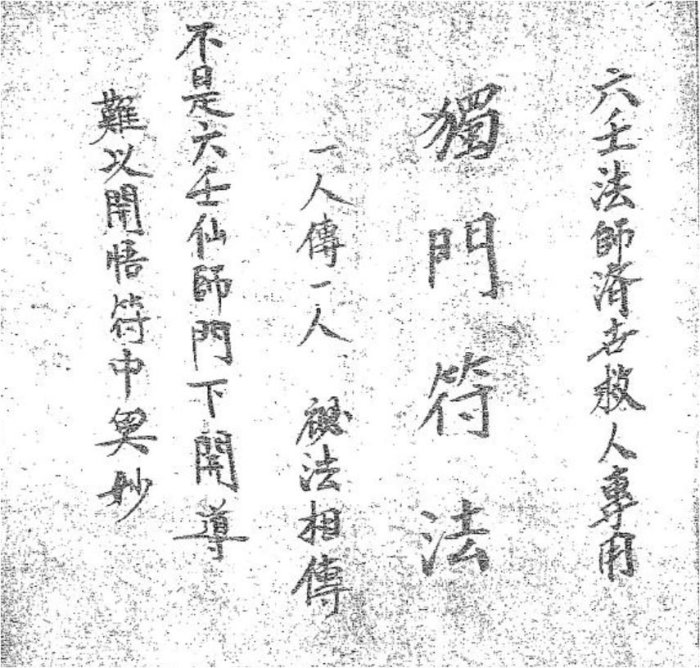 六壬法師済世救人專用
獨門符法
一人傳一人 秘法相傳
不是六壬仙師門下開導
難以開悟符中奧妙